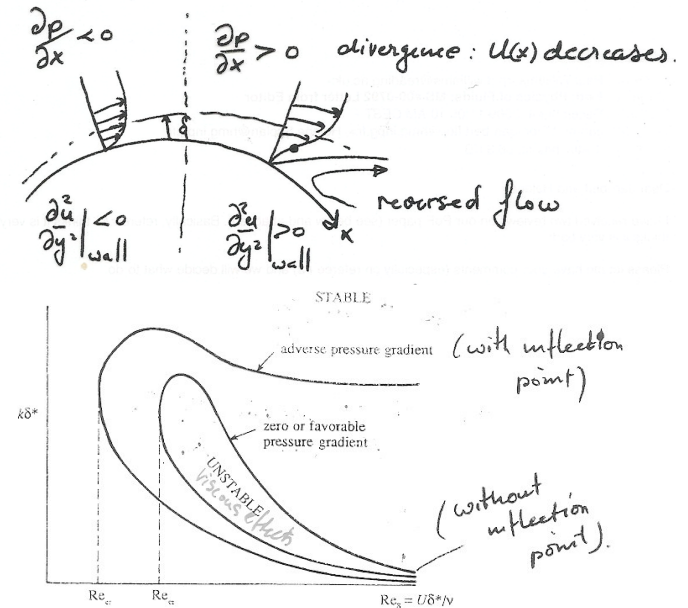 ∂p/∂x < 0
∂p/∂x > 0
divergence : U(x) decreases.
δ
∂²u/∂y²|wall < 0
∂²u/∂y²|wall > 0
reversed flow
x
STABLE
adverse pressure gradient
(with inflection
point)
kδ*
zero or favorable
pressure gradient
UNSTABLE
viscous effects
(without
inflection
point).
Re_cr
Re_cr
Re_δ = Uδ*/ν